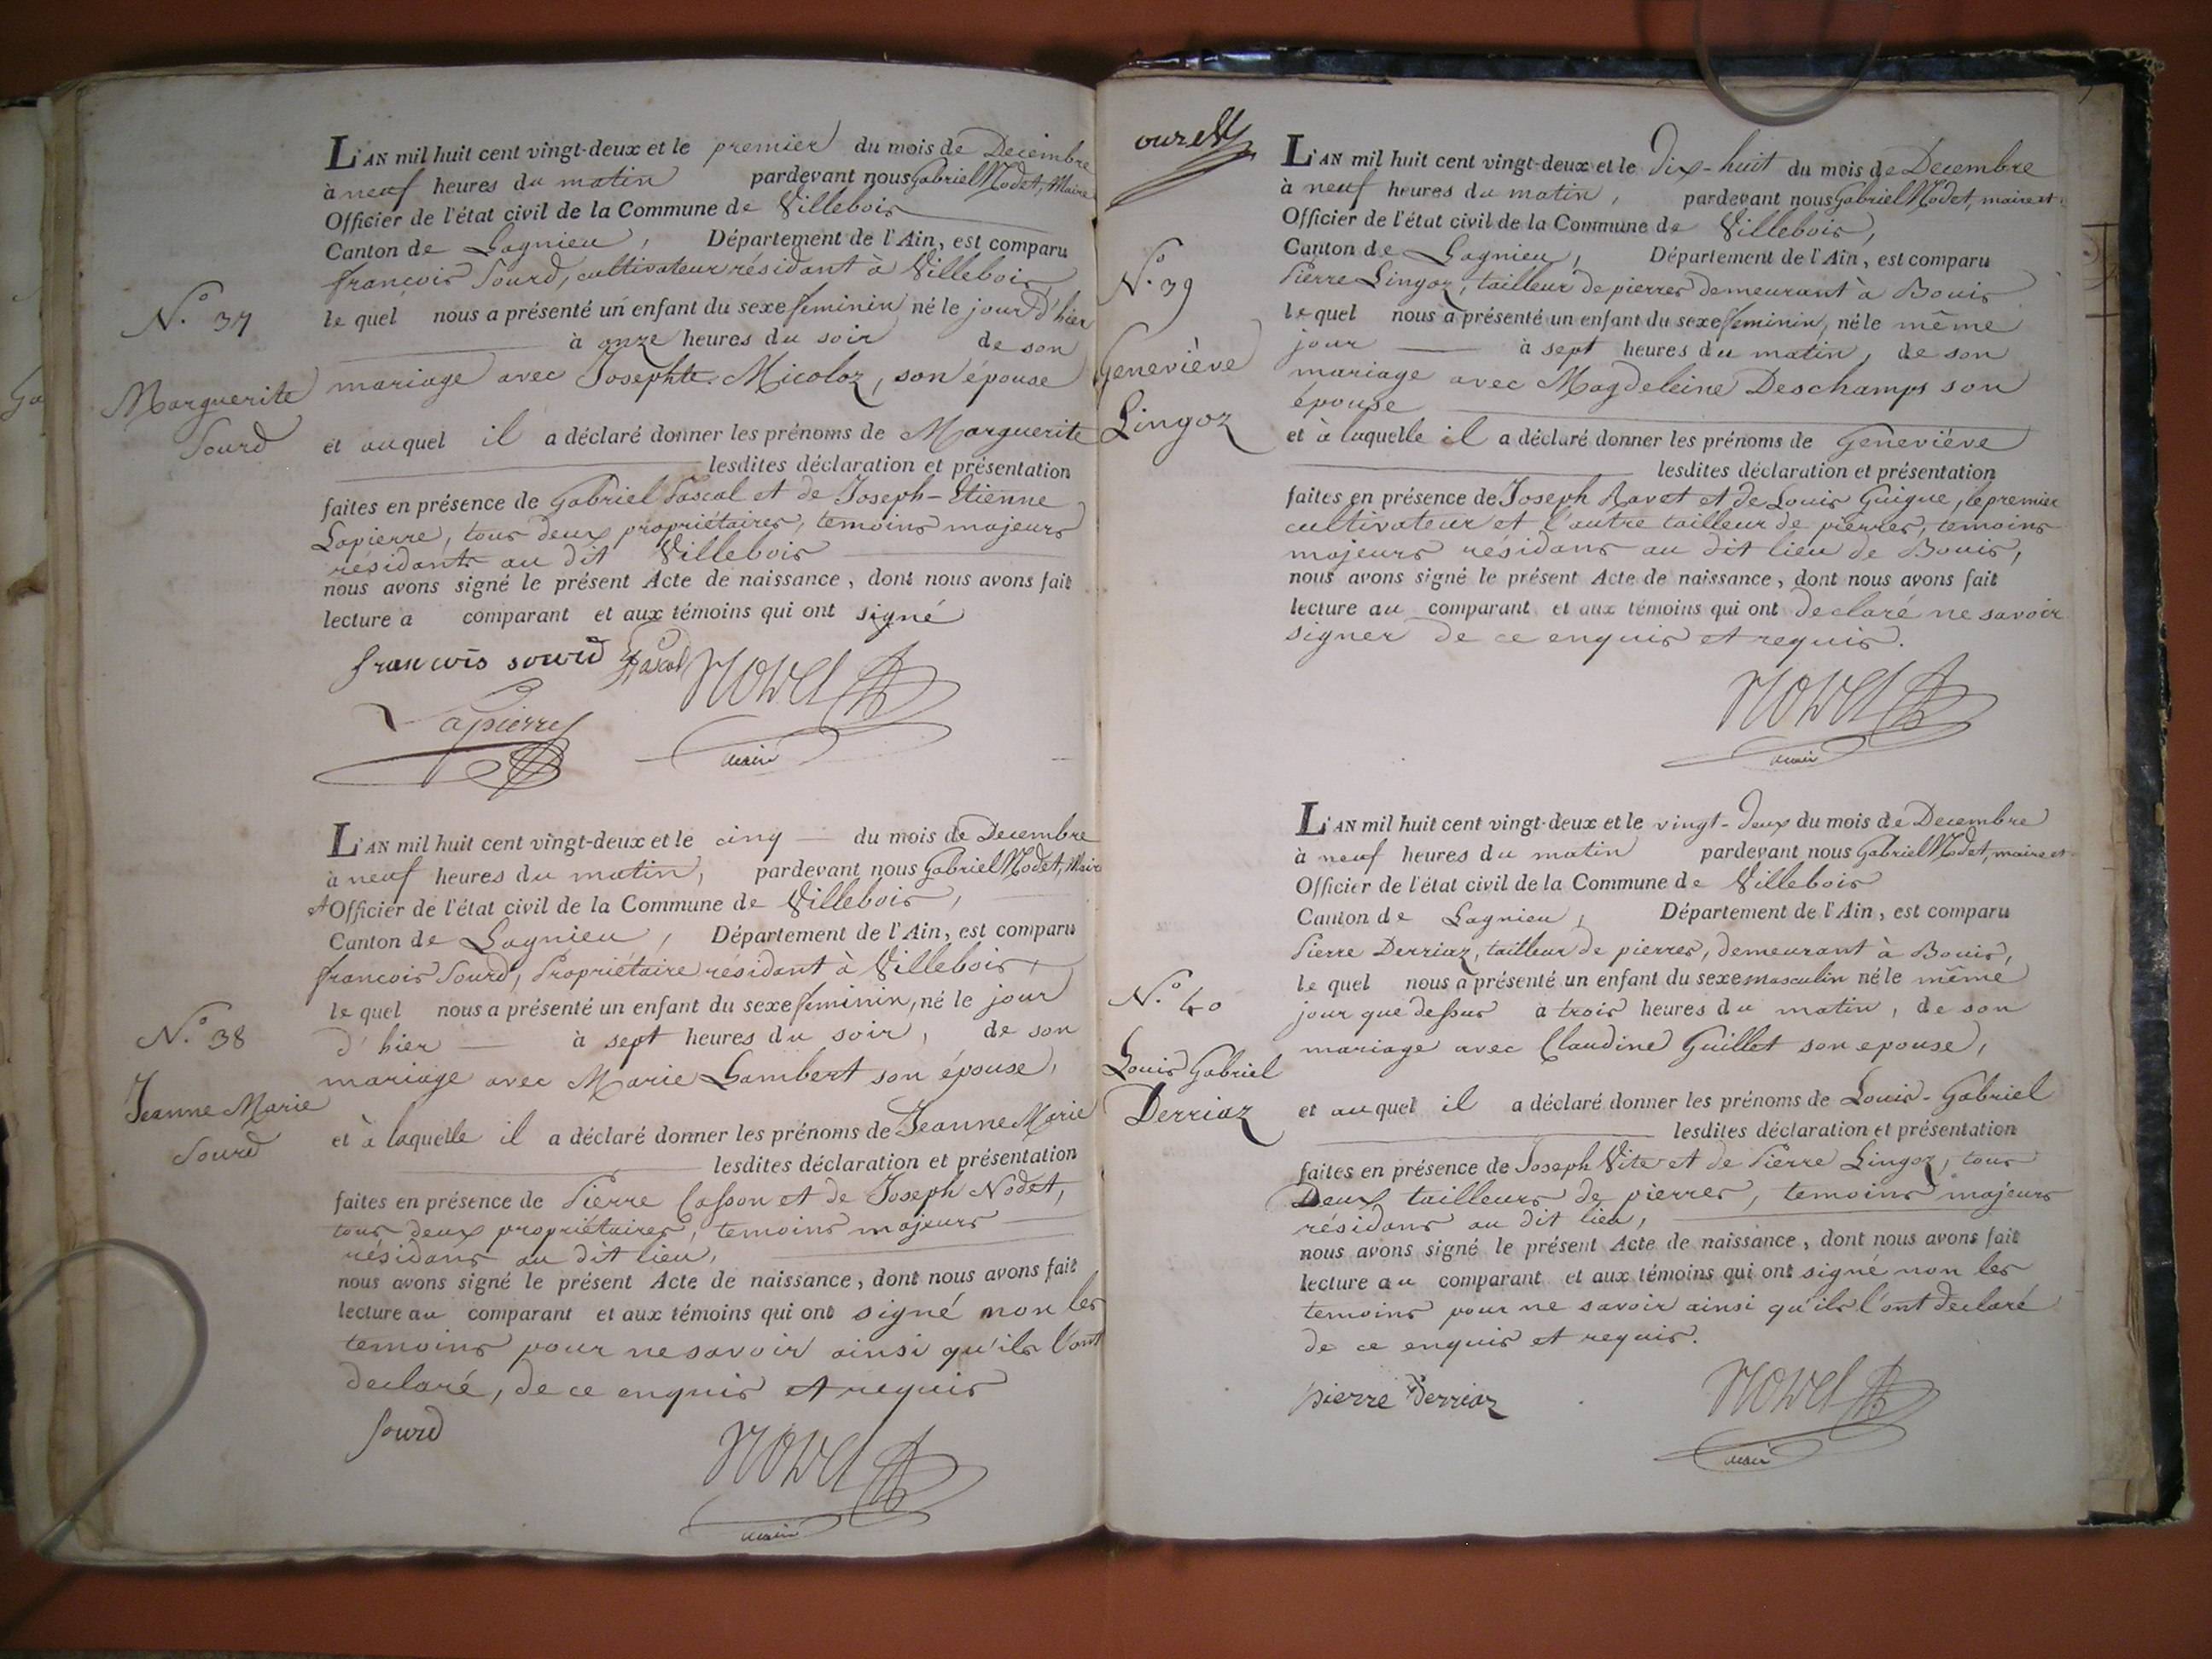 L'AN mil huit cent vingt-deux et le premier du mois de Decembre
à neuf heures du matin pardevant nous Gabriel Nodet, Maire
Officier de l'état civil de la Commune de Villebois
Canton de Lagnieu, Département de l'Ain, est comparu
françois Sourd, cultivateur résidant à Villebois
le quel nous a présenté un enfant du sexe feminin né le jour d'hier
à onze heures du soir de son
mariage avec Josephte Micoloz, son épouse
et au quel il a déclaré donner les prénoms de Marguerite
lesdites déclaration et présentation
faites en présence de Gabriel Pascal et de Joseph-Etienne
Lapierre, tous deux propriétaires, temoins majeurs
résidants au dit Villebois
nous avons signé le présent Acte de naissance, dont nous avons fait
lecture a comparant et aux témoins qui ont signé
N.° 37
Marguerite
Sourd
francois sourd Pascal Nodet
Lapierre
maire
L'AN mil huit cent vingt-deux et le cinq du mois de Decembre
à neuf heures du matin, pardevant nous Gabriel Nodet, Maire
et Officier de l'état civil de la Commune de Villebois,
Canton de Lagnieu, Département de l'Ain, est comparu
françois Sourd, Propriétaire résidant à Villebois,
le quel nous a présenté un enfant du sexe feminin, né le jour
d'hier à sept heures du soir, de son
mariage avec Marie Lambert son épouse,
et à laquelle il a déclaré donner les prénoms de Jeanne Marie
lesdites déclaration et présentation
faites en présence de Pierre Casson et de Joseph Nodet,
tous deux propriétaires, temoins majeurs
résidans au dit lieu,
nous avons signé le présent Acte de naissance, dont nous avons fait
lecture au comparant et aux témoins qui ont signé non les
temoins pour ne savoir ainsi qu'ils l'ont
declaré, de ce enquis et requis
N.° 38
Jeanne Marie
Sourd
Sourd Nodet
maire
L'AN mil huit cent vingt-deux et le Dix-huit du mois de Decembre
à neuf heures du matin, pardevant nous Gabriel Nodet, maire et
Officier de l'état civil de la Commune de Villebois,
Canton de Lagnieu, Département de l'Ain, est comparu
Pierre Lingoz, tailleur de pierres demeurant à Bouis
le quel nous a présenté un enfant du sexe feminin, né le même
jour à sept heures du matin, de son
mariage avec Magdeleine Deschamps son
épouse
et à laquelle il a déclaré donner les prénoms de Geneviéve
lesdites déclaration et présentation
faites en présence de Joseph Ravet et de Louis Guigue, le premier
cultivateur et l'autre tailleur de pierres, temoins
majeurs résidans au dit lieu de Bouis,
nous avons signé le présent Acte de naissance, dont nous avons fait
lecture au comparant et aux témoins qui ont declaré ne savoir
signer de ce enquis et requis.
N.° 39
Geneviève
Lingoz
Nodet
maire
L'AN mil huit cent vingt-deux et le vingt-deux du mois de Decembre
à neuf heures du matin pardevant nous Gabriel Nodet, maire et
Officier de l'état civil de la Commune de Villebois
Canton de Lagnieu, Département de l'Ain, est comparu
Pierre Derriaz, tailleur de pierres, demeurant à Bouis,
le quel nous a présenté un enfant du sexe masculin né le même
jour que dessus à trois heures du matin, de son
mariage avec Claudine Guillet son epouse,
et au quel il a déclaré donner les prénoms de Louis-Gabriel
lesdites déclaration et présentation
faites en présence de Joseph Vite et de Pierre Lingoz, tous
Deux tailleurs de pierres, temoins majeurs
résidans au dit lieu,
nous avons signé le présent Acte de naissance, dont nous avons fait
lecture au comparant et aux témoins qui ont signé non les
temoins pour ne savoir ainsi qu'ils l'ont declaré
de ce enquis et requis.
N.° 40
Louis Gabriel
Derriaz
pierre Derriaz Nodet
maire